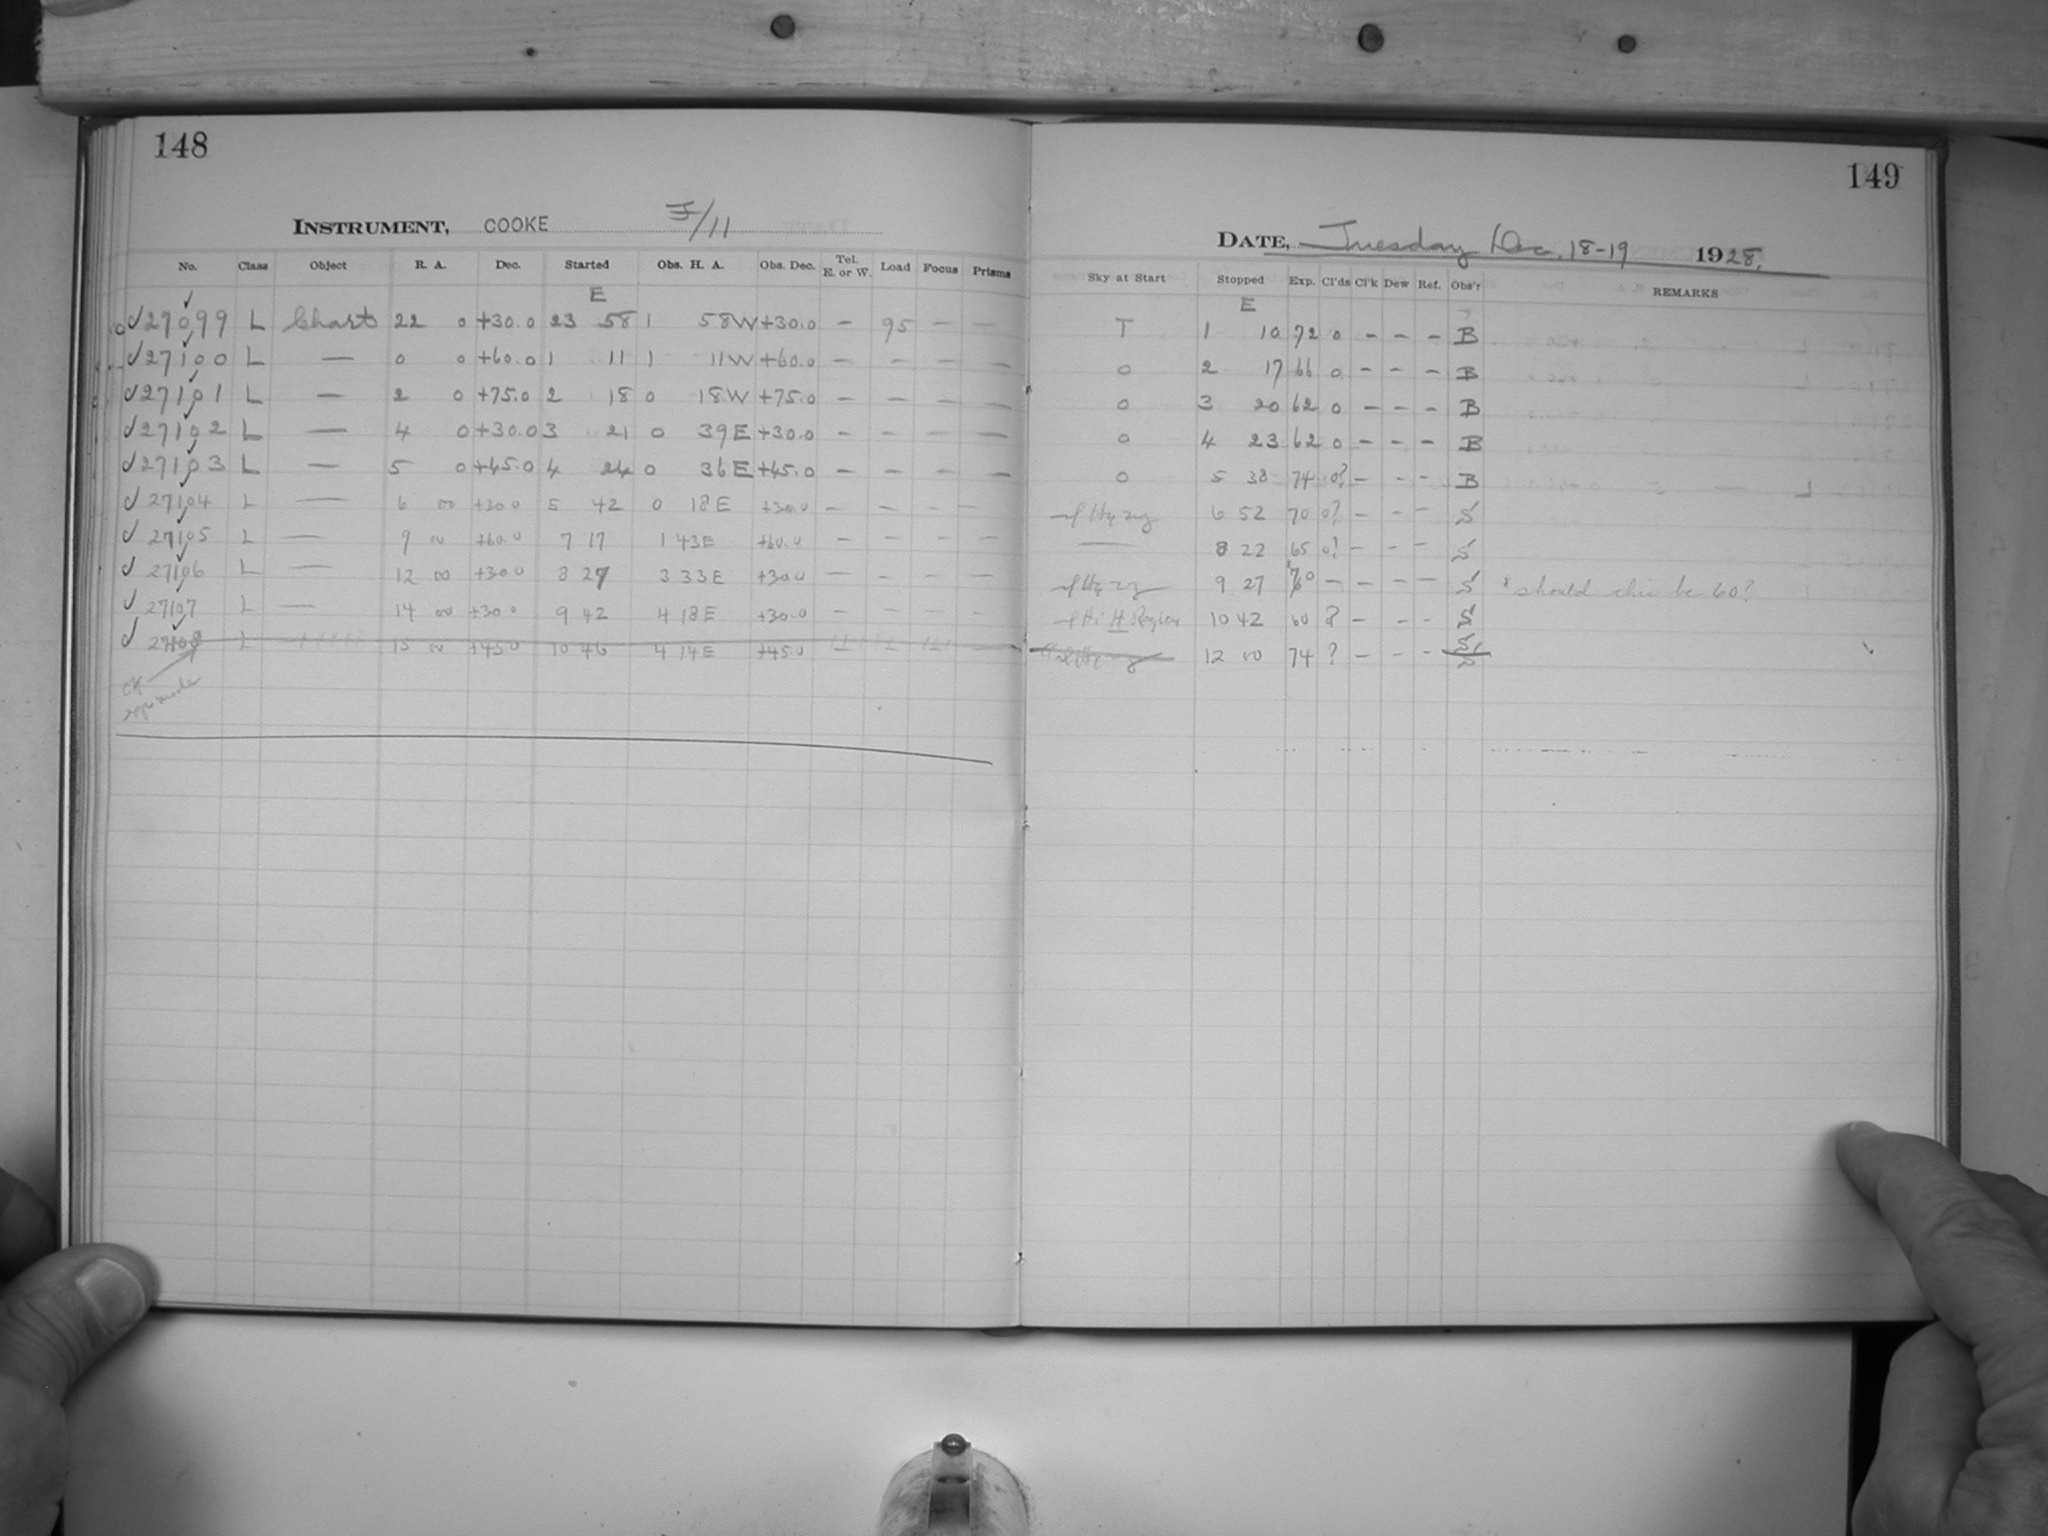 148
INSTRUMENT, COOKE F/11
No. Class Object R. A. Dec. Started Obs. H. A. Obs. Dec. Tel. E. or W. Load Focus Prisms
E
✓27099 L Chart 22 0 +30.0 23 58 1 58W +30.0 – 95 – –
✓27100 L — 0 0 +60.0 1 11 1 11W +60.0 – – – –
✓27101 L — 2 0 +75.0 2 18 0 18W +75.0 – – – –
✓27102 L — 4 0 +30.0 3 21 0 39E +30.0 – – – –
✓27103 L — 5 0 +45.0 4 24 0 36E +45.0 – – – –
✓27104 L — 6 00 +30.0 5 42 0 18E +30.0 – – – –
✓27105 L — 9 00 +60.0 7 17 1 43E +60.0 – – – –
✓27106 L — 12 00 +30.0 8 27 3 33E +30.0 – – – –
✓27107 L — 14 00 +30.0 9 42 4 18E +30.0 – – – –
✓27108 L 15 00 +45.0 10 46 4 14E +45.0
made
149
DATE, Tuesday Dec. 18-19 1928.
Sky at Start Stopped Exp. Cl'ds Cl'k Dew Ref. Obs'r REMARKS
E
T 1 10 72 0 – – – B
0 2 17 66 0 – – – B
0 3 20 62 0 – – – B
0 4 23 62 0 – – – B
0 5 38 74 0? – – – B
Hazy 6 52 70 0? – – – S
— 8 22 65 0? – – – S
Hazy 9 27 *60 – – – – S *should this be 60?
10 42 60 ? – – – S
12 00 74 ? – – – S